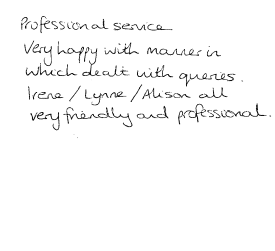 Professional service
Very happy with manner in
which dealt with queries.
Irene / Lynne / Alison all
very friendly and professional.